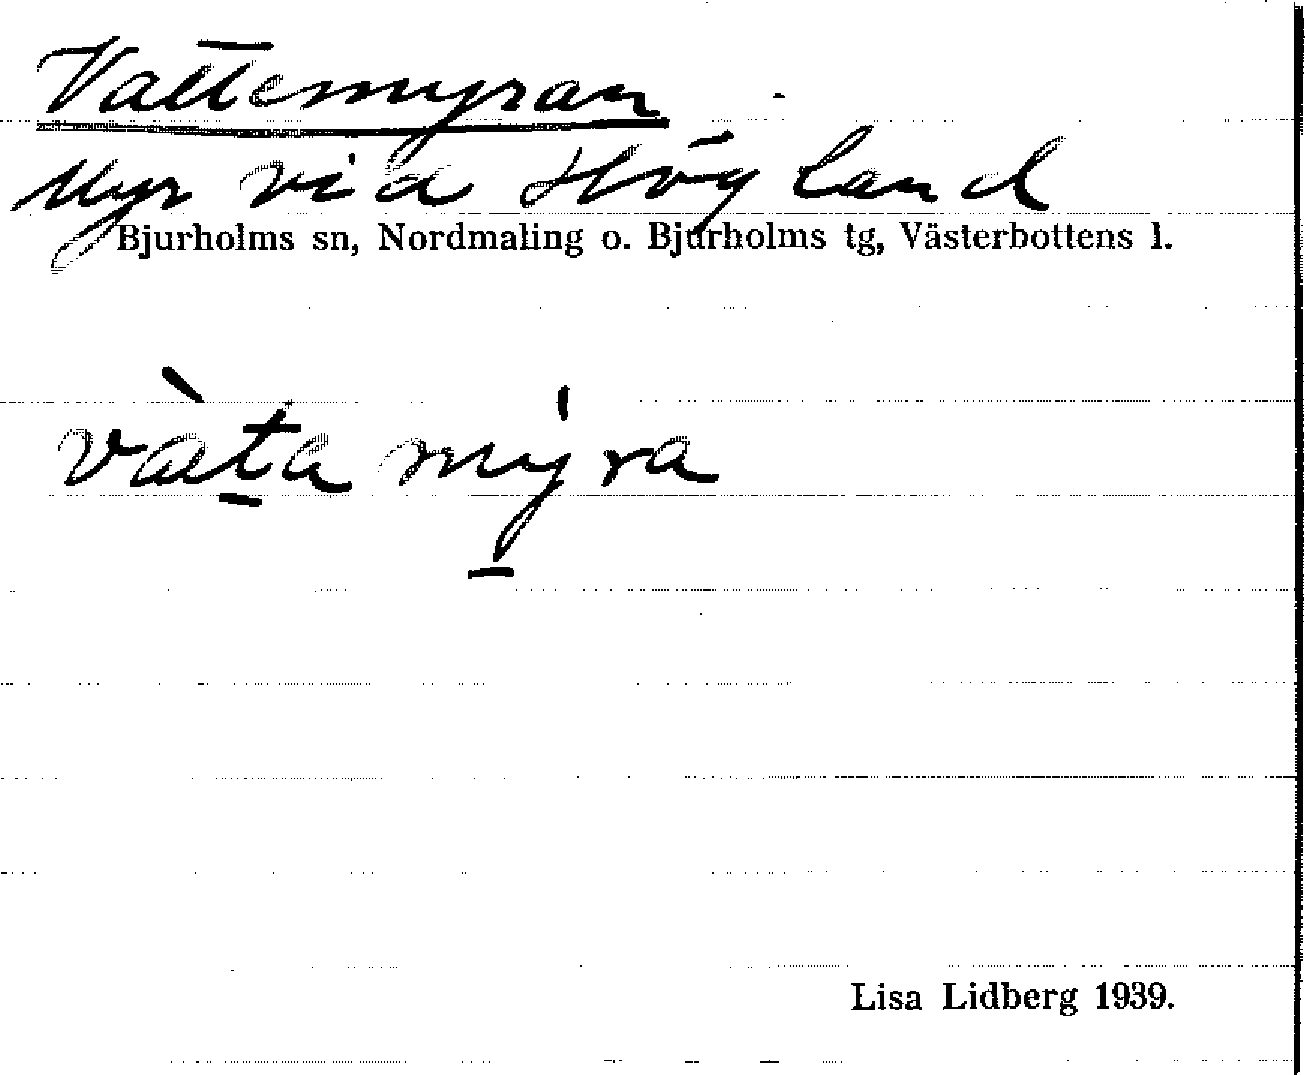 Vattemyran
Myr vid Högland
Bjurholms sn, Nordmaling o. Bjurholms tg, Västerbottens l.
vàta mýra
Lisa Lidberg 1939.